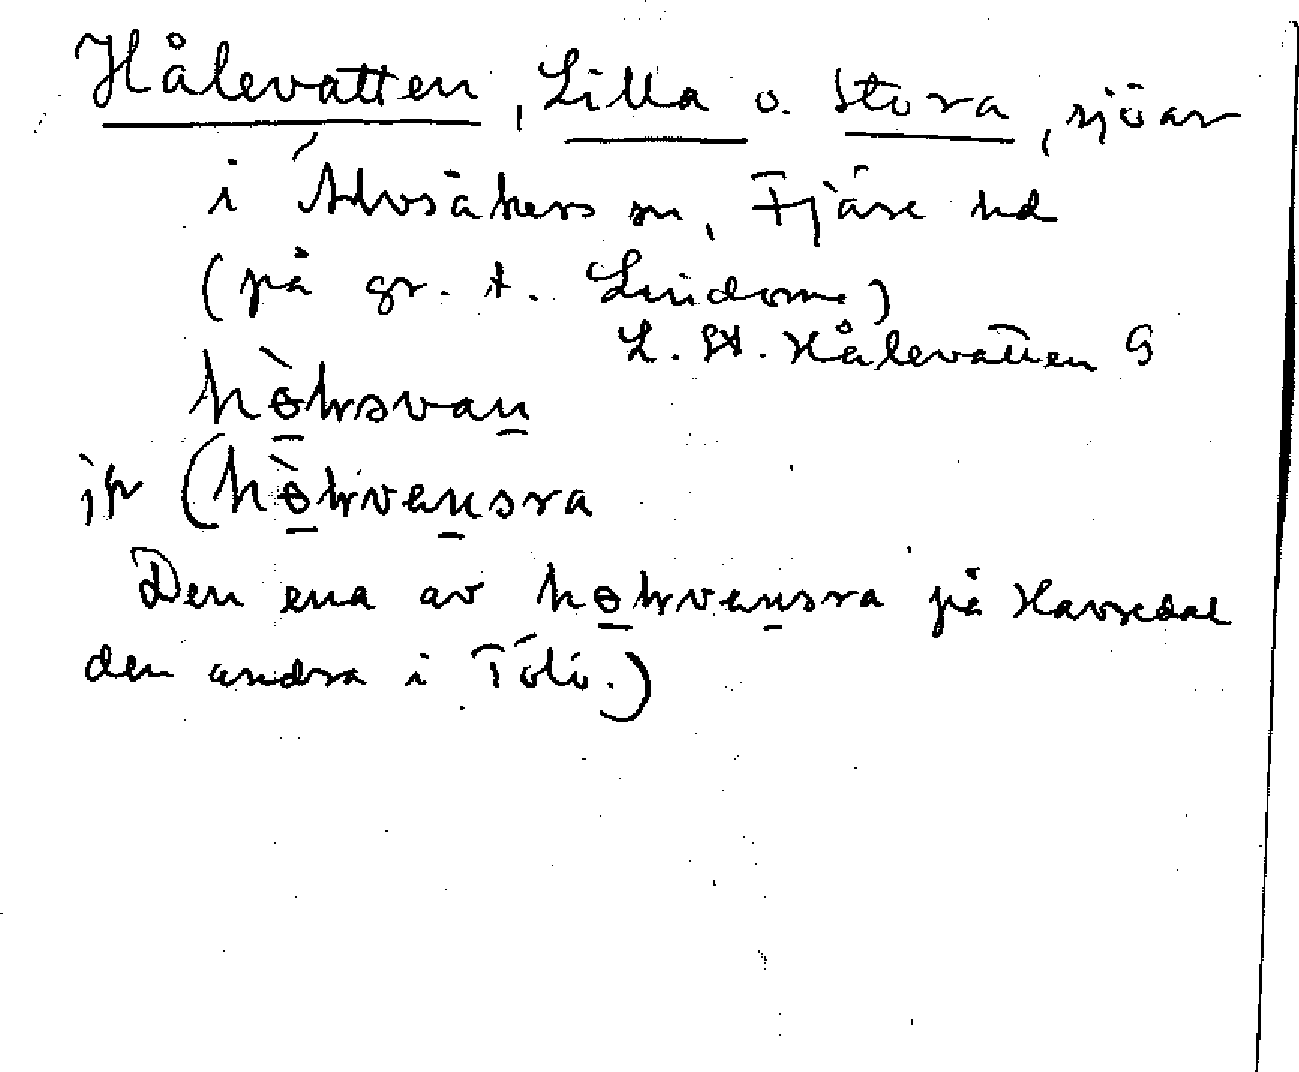 Hålevatten, Lilla o. Stora, sjöar
i Älvsåkers sn, Fjäre hd
(på gr. t. Lindome)
L. St. Hålevatten G
Den ena av på Havredal
den andra i Tölö.)